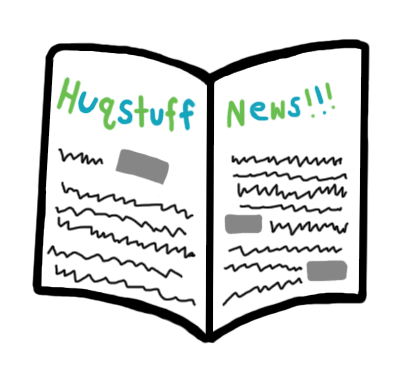 Huqstuff News!!!